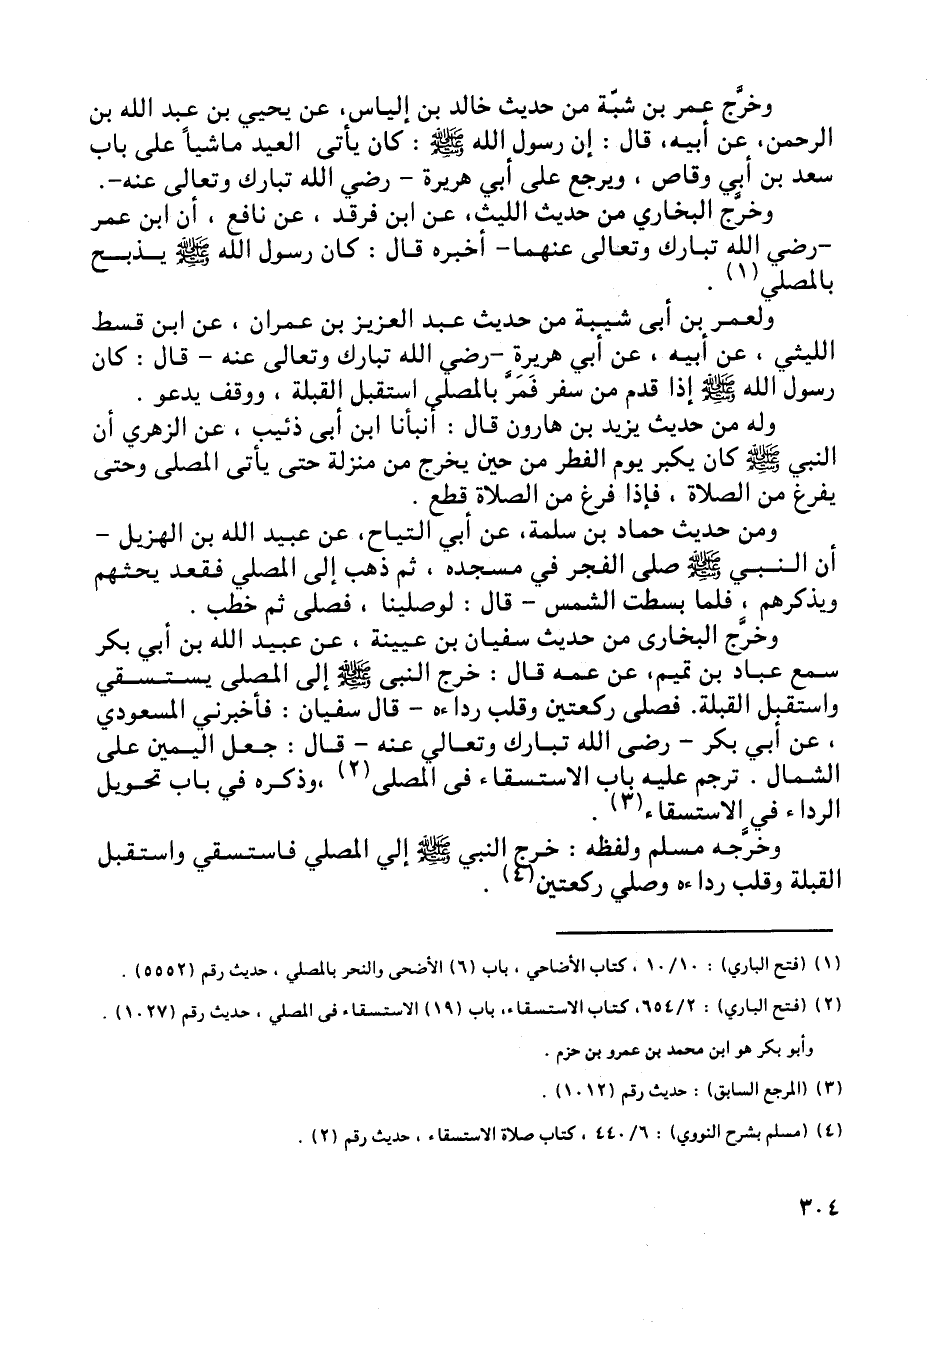 وخرَّج عمر بن شبّة من حديث خالد بن إلياس، عن يحيي بن عبد الله بن
الرحمن، عن أبيه، قال : إن رسول الله ﷺ : كان يأتى العيد ماشياً على باب
سعد بن أبي وقاص ، ويرجع على أبي هريرة – رضي الله تبارك وتعالى عنه–.
وخرَّج البخاري من حديث الليث، عن ابن فرقد ، عن نافع ، أن ابن عمر
–رضي الله تبارك وتعالى عنهما– أخبره قال : كان رسول الله ﷺ يـذبـح
بالمصلي(١) .
ولعمر بن أبى شيبة من حديث عبد العزيز بن عمران ، عن ابن قسط
الليثي ، عن أبيه ، عن أبي هريرة –رضي الله تبارك وتعالى عنه – قال : كان
رسول الله ﷺ إذا قدم من سفر فَمَرَّ بالمصلي استقبل القبلة ، ووقف يدعو .
وله من حديث يزيد بن هارون قال : أنبأنا ابن أبى ذئيب ، عن الزهري أن
النبي ﷺ كان يكبر يوم الفطر من حين يخرج من منزلة حتى يأتى المصلى وحتى
يفرغ من الصلاة ، فإذا فرغ من الصلاة قطع .
ومن حديث حماد بن سلمة، عن أبي التياح، عن عبيد الله بن الهزيل –
أن النـبـي ﷺ صلى الفجر في مسجده ، ثم ذهب إلى المصلي فقعد يحثهم
ويذكرهم ، فلما بسطت الشمس – قال : لوصلينا ، فصلى ثم خطب .
وخرَّج البخارى من حديث سفيان بن عيينة ، عن عبيد الله بن أبي بكر
سمع عباد بن تميم، عن عمه قال : خرج النبى ﷺ إلى المصلى يستسقي
واستقبل القبلة. فصلى ركعتين وقلب رداءه – قال سفيان : فأخبرني المسعودي
، عن أبي بكر – رضى الله تبارك وتعالي عنه – قال : جعل اليمين على
الشمال . ترجم عليه باب الاستسقاء فى المصلى(٢) ،وذكره في باب تحويل
الرداء في الاستسقاء(٣) .
وخرَّجه مسلم ولفظه : خرج النبي ﷺ إلي المصلي فاستسقي واستقبل
القبلة وقلب رداءه وصلي ركعتين(٤) .
(١) (فتح الباري) : ١٠/١٠ ، كتاب الأضاحي ، باب (٦) الأضحى والنحر بالمصلي ، حديث رقم (٥٥٥٢) .
(٢) (فتح الباري) : ٦٥٤/٢، كتاب الاستسقاء، باب (١٩) الاستسقاء فى المصلي ، حديث رقم (١٠٢٧) .
وأبو بكر هو ابن محمد بن عمرو بن حزم .
(٣) (المرجع السابق) : حديث رقم (١٠١٢) .
(٤) (مسلم بشرح النووي) : ٤٤٠/٦ ، كتاب صلاة الاستسقاء ، حديث رقم (٢) .
٣٠٤